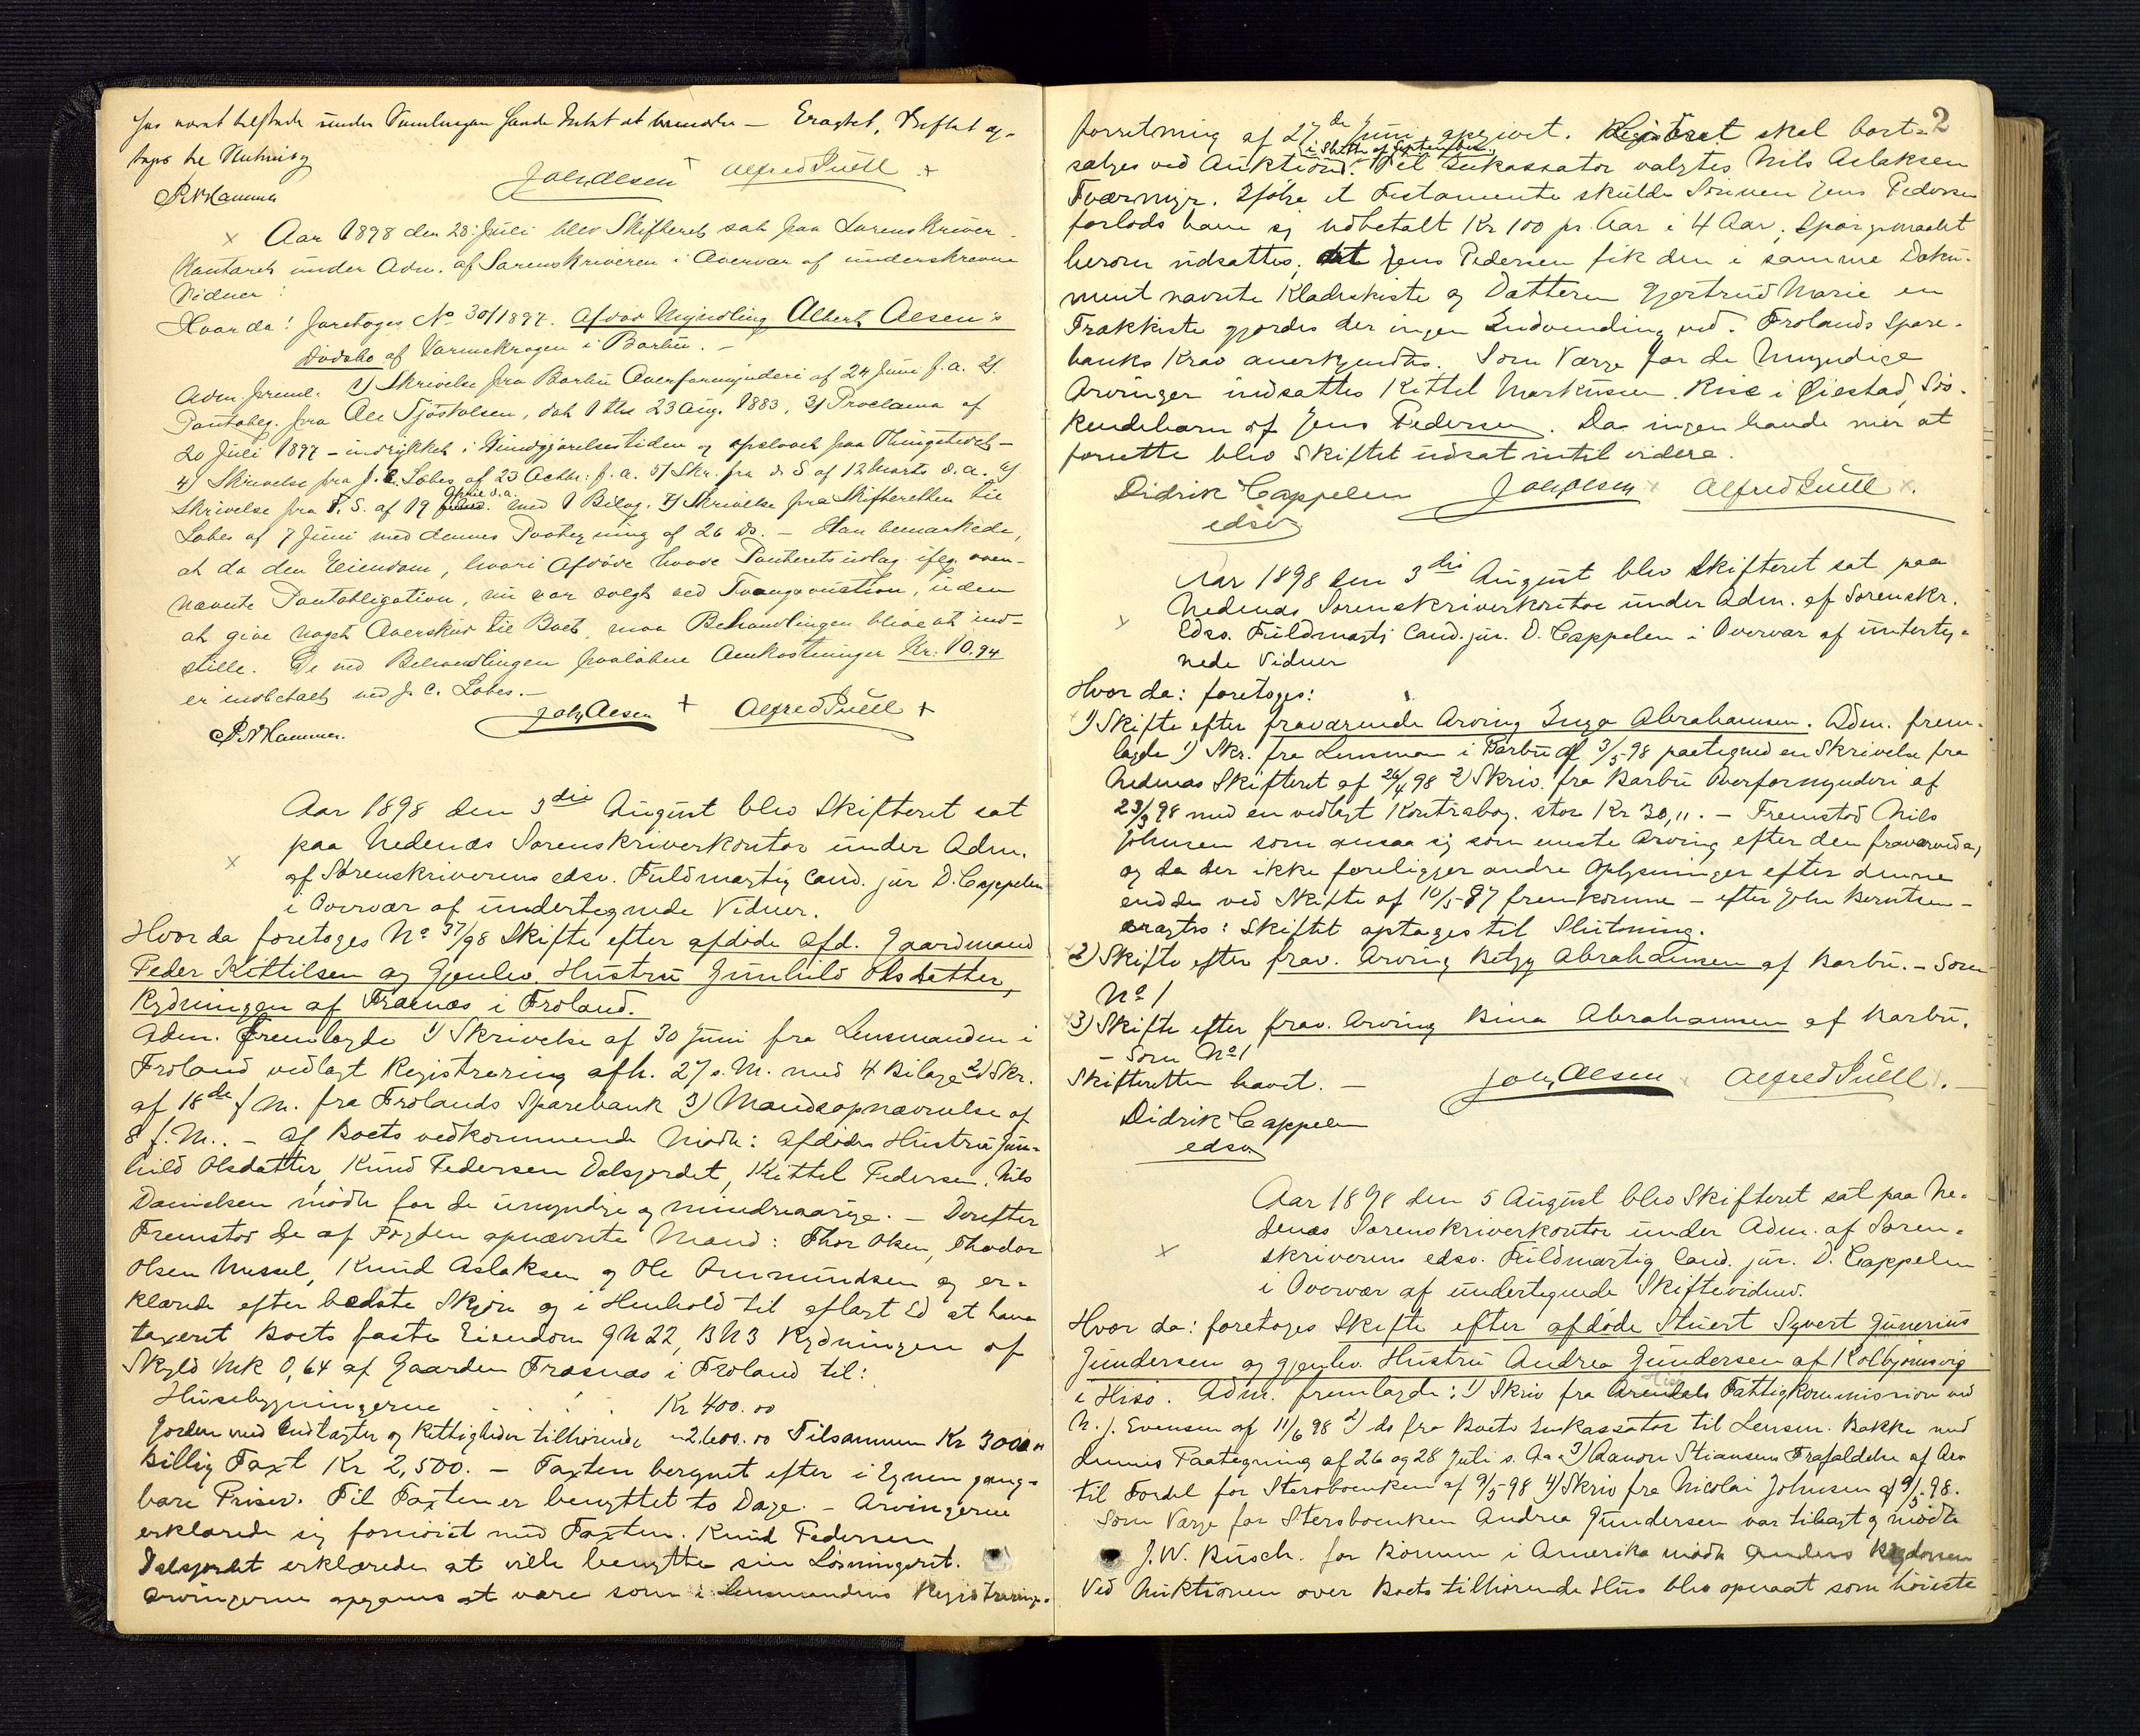 været tilstede under Samlingen havde Intet at bemærke — Eragtet, Skiftet op-
tages til Slutning
P. N. Hammer Joh, Olsen + Alfred Juell +
× Aar 1898 den 28. Juli blev Skifteret sat paa Sorenskriver-
kontoret under Adm. af Sorenskriveren i Overvær af underskrevne
Vidner:
Hvor da: foretoges No 30/1897. Afdød Myndling Albert Olsen's
Dødsbo af Varmekrogen i Barbu. —
Adm. freml. 1) Skrivelse fra Barbu Overformynderi af 24 Juni f. a. 2)
Pantoblg. fra Ole Tjøstolsen, dat. 1 thl. 23 Aug. 1883, 3) Proclama af
20 Juli 1897 – indrykket i Kundgjørelsestiden og opslaaet paa Thingstedet –
4) Skrivelse fra J. C. Løbes af 23 Octbr. f. a. 5) Skr. fra d. S. af 12 Marts d. a. 6)
Skrivelse fra d. S. af 19 April d. a. med 1 Bilag. 7) Skrivelse fra Skifteretten til
Løbes af 7 Juni med dennes Paategning af 26 ds. – Han bemærkede,
at da den Eiendom, hvori Afdøde havde Panteretsudlæg iflg. oven-
nævnte Pantobligation, nu var solgt ved Tvangsauction, uden
at give noget Overskud til Boet, maa Behandlingen blive at ind-
stille. De ved Behandlingen paaløbne Omkostninger Kr. 10.94
er indbetalt ved J. C. Løbes. —
P. N. Hammer. Joh, Olsen + Alfred Juell +
Aar 1898 den 3die August blev Skifteret sat
× paa Nedenæs Sorenskriverkontor under Adm.
af Sorenskriverens edsv. Fuldmægtig Cand. jur D. Cappelen
i Overvær af undertegnede Vidner.
Hvor da foretoges No 37/98 Skifte efter afdøde Afd. Gaardmand
Peder Kittilsen og Gjenlev. Hustru Gunhild Olsdatter,
Rydningen af Frænæs i Froland.
Adm. fremlagde 1) Skrivelse af 30 Juni fra Lensmanden i
Froland vedlagt Registrering afh. 27 s. M. med 4 Bilage 2) Skr.
af 18de f M. fra Frolands Sparebank 3) Mandsopnævnelse af
8 f. M. . – Af Boets vedkommende mødte: afdødes Hustru Gun-
hild Olsdatter, Knud Pedersen Dalsjordet, Kittel Pedersen. Nils
Danielsen mødte for de umyndige og mindreaarige. — Derefter
Fremstod de af Fogden opnævnte Mænd: Thor Olsen, Theodor
Olsen Messel, Knud Aslaksen og Ole Ommundsen og er-
klærede efter bedste Skjøn og i Henhold til aflagt Ed at have
taxeret Boets faste Eiendom G N 22, B N 3 Rydningen af
Skyld Mk 0,64 af Gaarden Frænæs i Froland til:
Husebygningerne . . . . Kr 400.00
Jorden med Indtægter og Rettigheder tilhørende „ 2.600.00 Tilsammen Kr 3000 „
Billig Taxt Kr 2,500. – Taxten beregnet efter i Egnen gang-
bare Priser. Til Taxten er benyttet to Dage. – Arvingerne
erklærede sig fornøiet med Taxten. Knud Pedersen
Dalsjordet erklærede at ville benytte sin Løsningsret.
Arvingerne opgaves at være som i Lensmandens Registrerings-
2
forretning af 27de Juni, opgivet. Registret skal bort-
i Slutten af September.
sælges ved Auktion. Til Inkassator valgtes Nils Aslaksen
Tværmyr. Ifølge et Testamente skulde Sønnen Jens Pedersen
forlods have sig udbetalt Kr 100 pr. Aar i 4 Aar, Spørgsmaalet
herom udsattes, at Jens Pedersen fik den i samme Doku-
ment nævnte Klædeskiste og Datteren Gjertrud Marie en
Trækkiste gjordes der ingen Indvending ved. Frolands Spare-
banks Krav anerkjendtes. Som Værge for de Umyndige
Arvinger indsattes Kittel Markusen Rise i Øiestad, Sø-
skendebarn af Jens Pedersen. Da ingen havde mer at
forrette blev Skiftet udsat indtil videre.
Didrik Cappelen Joh, Olsen × Alfred Juell ×.
edsv
Aar 1898 den 3die August blev Skifteret sat paa
× Nedenæs Sorenskriverkontor under Adm. af Sorenskr.
Edsv. Fuldmægti Cand. jur. D. Cappelen i Overvær af underteg-
nede Vidner
Hvor da: foretoges:
1) Skifte efter fraværende Arving Inga Abrahamsen. Adm. frem-
lagde 1) Skr. fra Lensman i Barbu af 3/5 98 paategned en Skrivelse fra
Nedenæs Skifteret af 26/4 98 2) Skriv. fra Barbu Overformynderi af
23/3 98 med en vedlagt Kontrabog. stor Kr 30,11. – Fremstod Nils
Johnsen som ansaa sig som eneste Arving efter den fraværende,
og da der ikke foreligger andre Oplysninger efter denne
end de ved Skifte af 10/5 87 fremkomne – efter John Berntsen –
eragtes: Skiftet optages til Slutning.
2) Skifte efter frav. Arving Betzy Abrahamsen af Barbu. – Som
No 1
3) Skifte efter frav. Arving Bina Abrahamsen af Barbu.
– Som No 1
Skifteretten hævet. — Joh, Olsen × Alfred Juell ×. —
Didrik Cappelen
edsv
Aar 1898 den 5 August blev Skifteret sat paa Ne-
denæs Sorenskriverkontor under Adm. af Soren-
× skriverens edsv. Fuldmægtig Cand. jur. D. Cappelen
i Overvær af undertegnede Skiftevidner.
Hvor da: foretoges Skifte efter afdøde Stuert Syvert Gunerius
Gundersen og gjenlev. Hustru Andrea Gundersen af Kolbjørnsvig
i Hisø. Adm. fremlagde: 1) Skriv fra Arendals Fattigkommission ved
N. J. Evensen af 11/6 98 2) ds fra Boets Inkassator til Lensm. Bakke med
dennes Paategning af 26 og 28 Juli s. Aa 3) Aanon Stiansens Frafaldelse af Arv
til Fordel for Stervboenken af 9/5 98 4) Skriv fra Nicolai Johnsen af 9/5 98.
Som Værge for Stervboenken Andrea Gundersen var tilsagt og mødte
J. W. Busch. for Børnene i Amerika mødte Anders
Ved Auktionen over Boets tilhørende Hus blev opnaaet som høieste